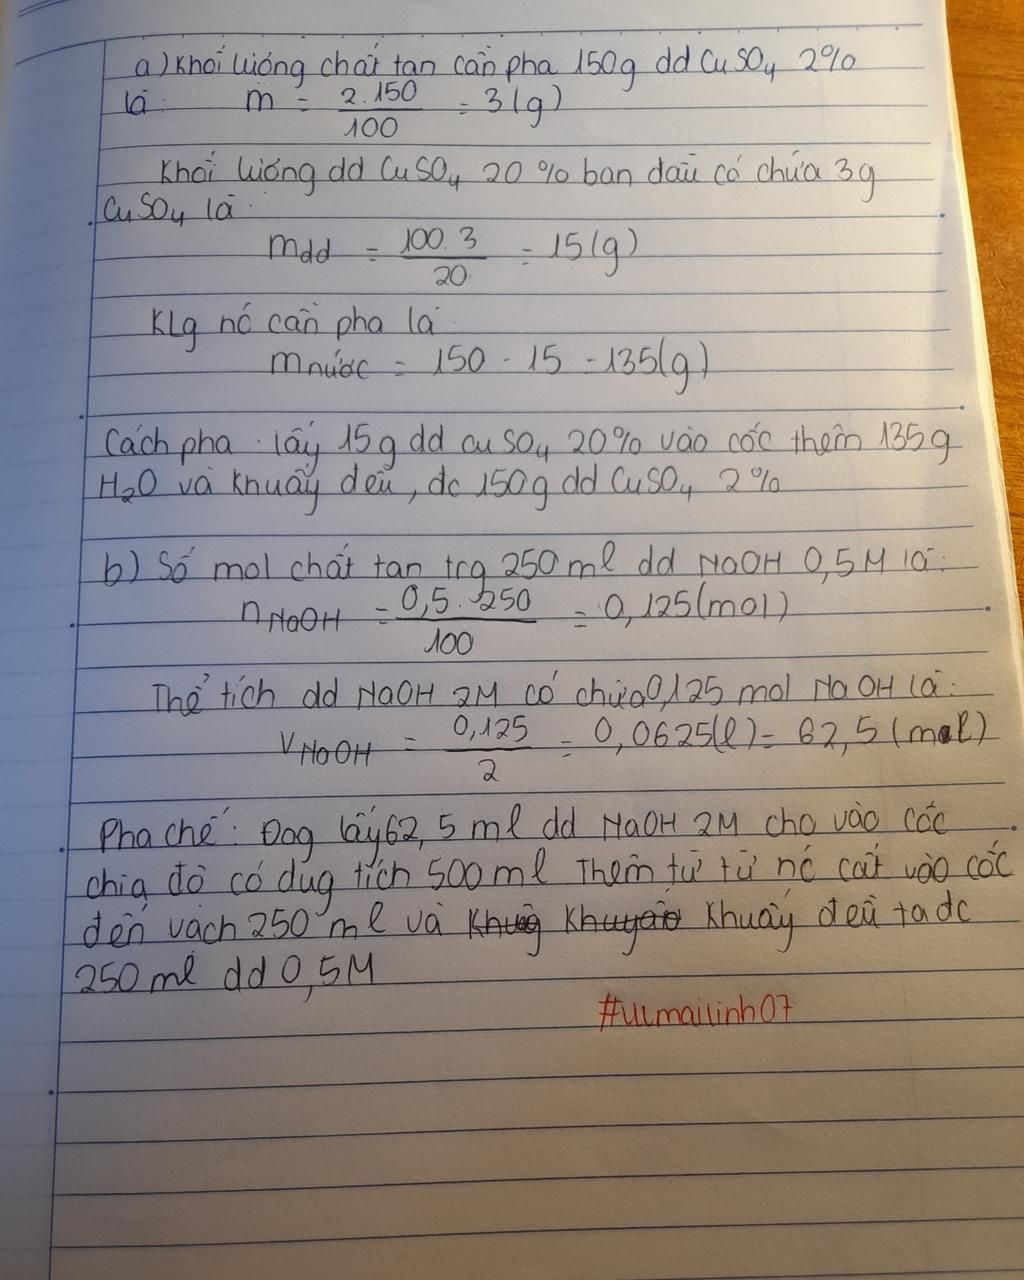 a) Khối lượng chất tan cần pha 150g dd CuSO₄ 2%
là: m = 2.150/100 = 3(g)
Khối lượng dd CuSO₄ 20% ban đầu có chứa 3g
CuSO₄ là:
mdd = 100.3/20 = 15(g)
KLg nc cần pha là
mnước = 150 - 15 = 135(g)
Cách pha: lấy 15g dd CuSO₄ 20% vào cốc thêm 135g
H₂O và khuấy đều, đc 150g dd CuSO₄ 2%
b) Số mol chất tan trg 250ml dd NaOH 0,5M là:
nNaOH = 0,5.250/100 = 0,125(mol)
Thể tích dd NaOH 2M có chứa 0,125 mol NaOH là:
VNaOH = 0,125/2 = 0,0625(l) = 62,5(ml)
Pha chế: Đog lấy 62,5 ml dd NaOH 2M cho vào cốc
chia độ có dug tích 500ml Thêm từ từ nc cất vào cốc
đến vạch 250 ml và khuấy đều ta đc
250ml dd 0,5M
#ulmailinh07